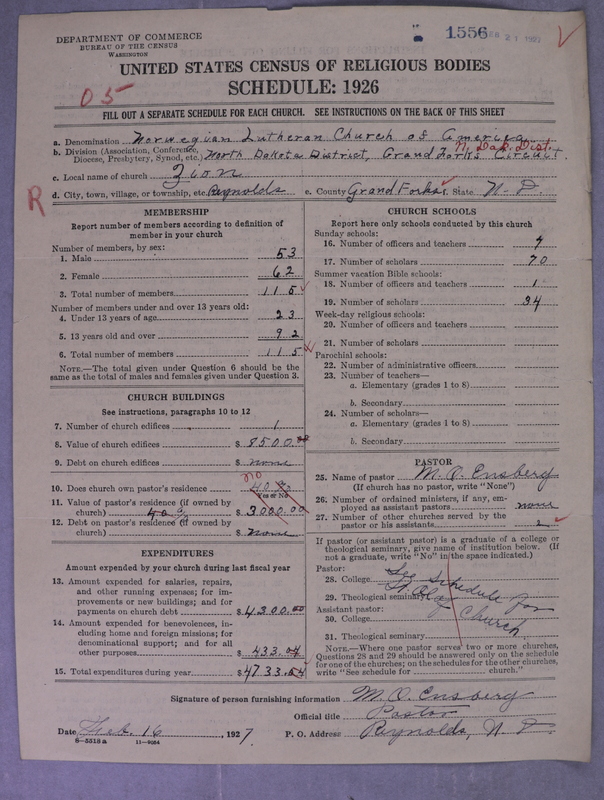 DEPARTMENT OF COMMERCE
BUREAU OF THE CENSUS
WASHINGTON
1556 FEB 21 1927
UNITED STATES CENSUS OF RELIGIOUS BODIES
SCHEDULE: 1926
05
FILL OUT A SEPARATE SCHEDULE FOR EACH CHURCH. SEE INSTRUCTIONS ON THE BACK OF THIS SHEET
a. Denomination Norwegian Lutheran Church of America
N. Dak. Dist.
b. Division (Association, Conference, Diocese, Presbytery, Synod, etc.) North Dakota District, Grand Forks Circuit.
c. Local name of church Zion
R
d. City, town, village, or township, etc. Reynolds e. County Grand Forks State N. D.
MEMBERSHIP
Report number of members according to definition of
member in your church
Number of members, by sex:
1. Male 53
2. Female 62
3. Total number of members 115
Number of members under and over 13 years old:
4. Under 13 years of age 23
5. 13 years old and over 92
6. Total number of members 115
NOTE.—The total given under Question 6 should be
same as the total of males and females given under Question 3.
CHURCH BUILDINGS
See instructions, paragraphs 10 to 12
7. Number of church edifices 1
8. Value of church edifices $ 8500.00
9. Debt on church edifices $ none
no
10. Does church own pastor's residence
Yes or No
11. Value of pastor's residence (if owned by
church) $ 3000.00
12. Debt on pastor's residence (if owned by
church) $ None
EXPENDITURES
Amount expended by your church during last fiscal year
13. Amount expended for salaries, repairs,
and other running expenses; for im-
provements or new buildings; and for
payments on church debt $ 4300.00
14. Amount expended for benevolences, in-
cluding home and foreign missions; for
denominational support; and for all
other purposes $ 433.04
15. Total expenditures during year $ 4733.04
CHURCH SCHOOLS
Report here only schools conducted by this church
Sunday schools:
16. Number of officers and teachers 7
17. Number of scholars 70
Summer vacation Bible schools:
18. Number of officers and teachers 1
19. Number of scholars 34
Week-day religious schools:
20. Number of officers and teachers
21. Number of scholars
Parochial schools:
22. Number of administrative officers
23. Number of teachers—
a. Elementary (grades 1 to 8)
b. Secondary
24. Number of scholars—
a. Elementary (grades 1 to 8)
b. Secondary
PASTOR
25. Name of pastor M. O. Ensberg
(If church has no pastor, write "None")
26. Number of ordained ministers, if any, em-
ployed as assistant pastors none
27. Number of other churches served by the
pastor or his assistants 2
If pastor (or assistant pastor) is a graduate of a college or
theological seminary, give name of institution below. (If
not a graduate, write "No" in the space indicated.)
Pastor:
28. College See Schedule for
29. Theological seminary St. Olaf
Assistant pastor:
30. College Church
31. Theological seminary
NOTE.—Where one pastor serves two or more churches,
Questions 28 and 29 should be answered only on the schedule
for one of the churches; on the schedules for the other churches,
write "See schedule for church."
Signature of person furnishing information M. O. Ensberg
Official title Pastor
Date Feb. 16, 1927 P. O. Address Reynolds, N. D.
8-5518a 11-9054